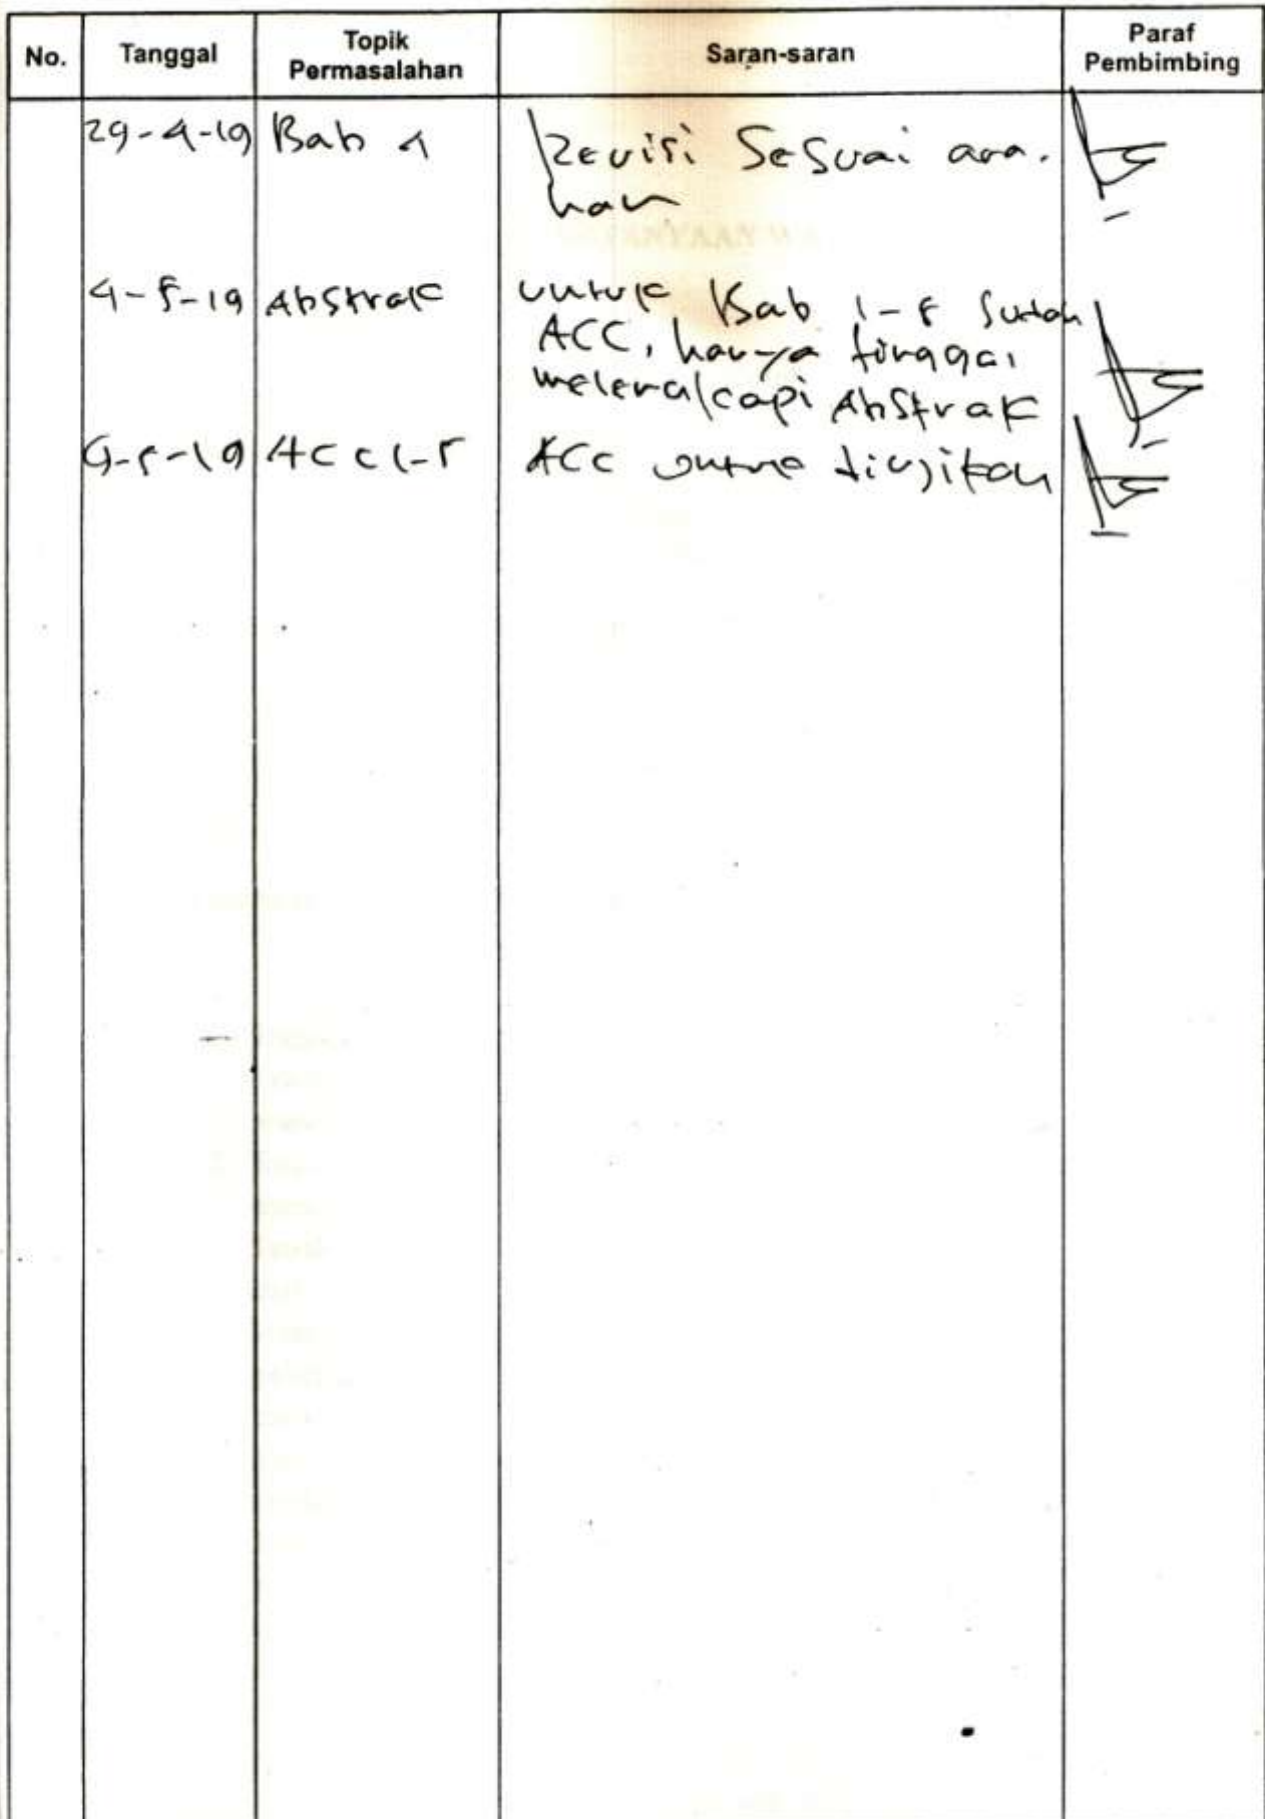 No. Tanggal Topik Permasalahan Saran-saran Paraf Pembimbing
29-4-19 Bab 4 Revisi Sesuai ara-
han
4-5-19 Abstrak untuk Bab 1-5 Sudah
ACC, hanya tinggal
melengkapi Abstrak
9-5-19 ACC 1-5 ACC untuk diujikan